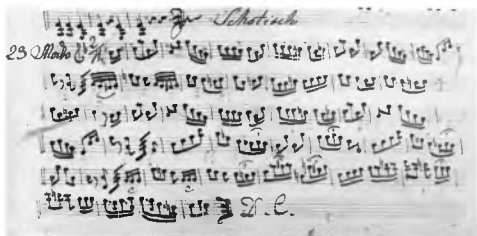 Schotisch
23 Modto
D. C.